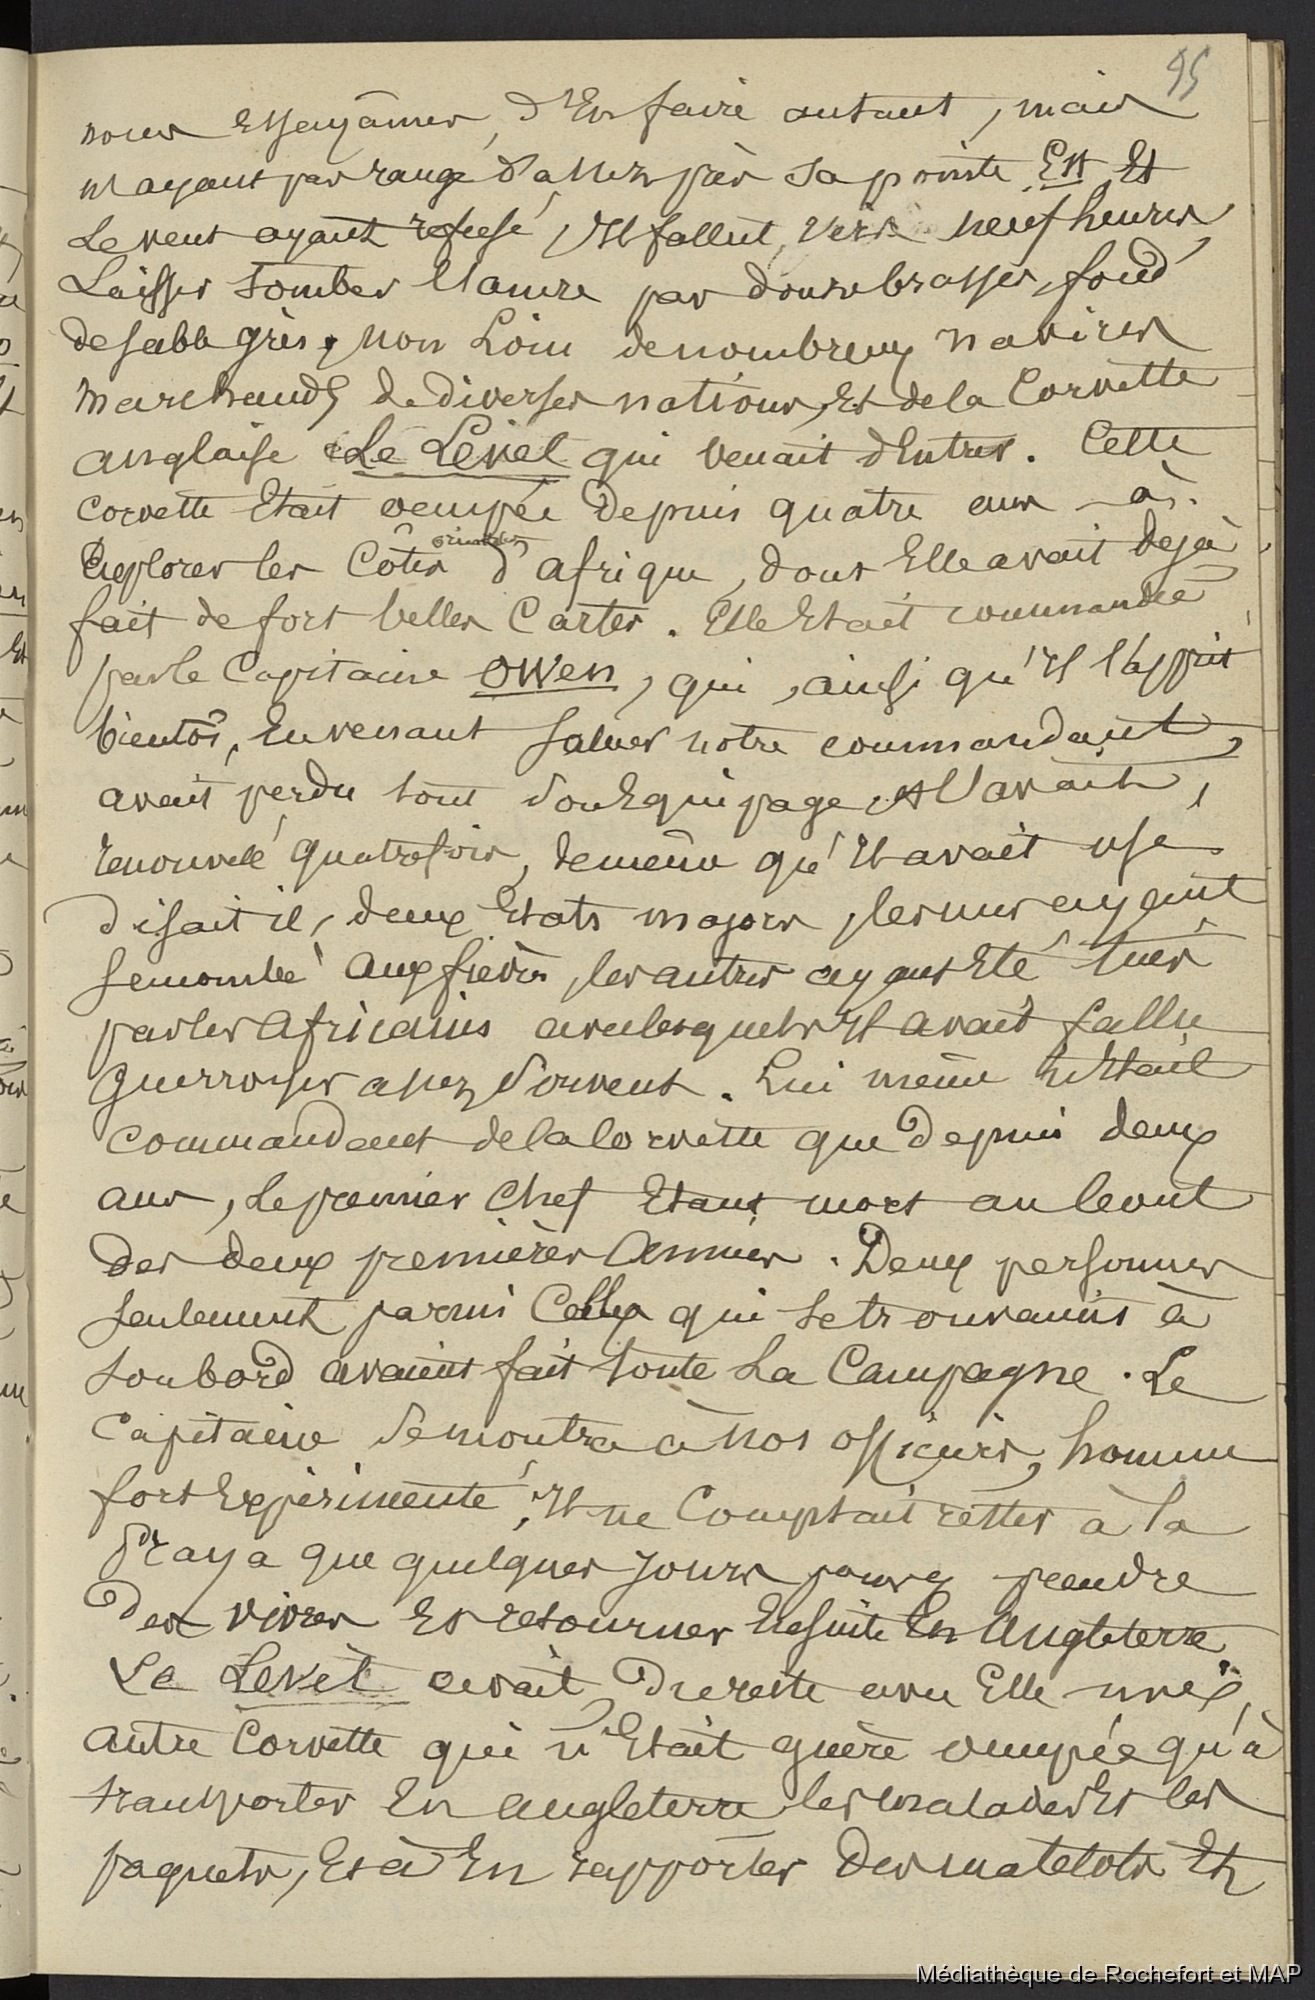 95
nous essayâmes, d'En faire autant, mais
n'ayant pas rangé d'assez près sa pointe Est Et
Le vent ayant refusé, Il fallut, vers neuf heures,
Laisser tomber l'ancre par douze brasses, fond
de sable gris, non Loin de nombreux navires
marchands de diverses nations, Et de la Corvette
anglaise Le Levet qui venait d'Entrer. Cette
corvette Etait occupée Depuis quatre ans à
Explorer les Côtes orientales d'afrique, dont Elle avait dejà
fait de fort belles Cartes. Elle Etait commandée
par le Capitaine Owen, qui, ainsi qu'Il l'apprit
bientôt, En venant saluer notre commandant,
avait perdu tout son Equipage, Et l'avait,
renouvelé quatre fois, de même qu'Il avait usé
disait il, deux Etats majors, les uns ayant
succombé aux fièvres, les autres ayant Eté tués
par les Africains avec lesquels Il avait fallu
guerroyer assez souvent. Lui même n'Etait
commandant de la Corvette que Depuis deux
ans, Le premier Chef Etant mort au bout
des deux premières années. Deux personnes
seulement parmi Celles qui se trouvaient à
son bord avaient fait toute La Campagne. Le
Capitaine se montra à nos officiers, homme
fort Expérimenté, Il ne Comptait rester à la
Praya que quelques jours pour y prendre
Des vivres Et retourner Ensuite En Angleterre.
Le Levet avait, Du reste avec Elle une
autre Corvette qui n'Etait guère occupée qu'à
transporter En angleterre les malades Et les
paquets, Et à En rapporter Des matelots Et
Médiathèque de Rochefort et MAP